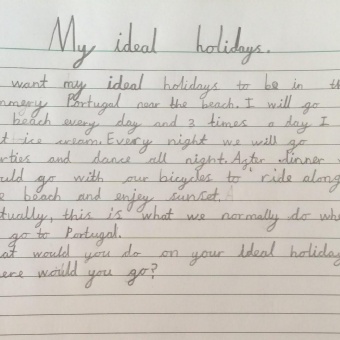 My ideal holidays.
want my ideal holidays to be in th
mmery Portugal near the beach. I will go
beach every day and 3 times a day I
t ice cream. Every night we will go
rties and dance all night. After dinner w
uld go with our bicycles to ride along
e beach and enjoy sunset.
tually, this is what we normally do whe
go to Portugal.
at would you do on your ideal holiday
ere would you go?